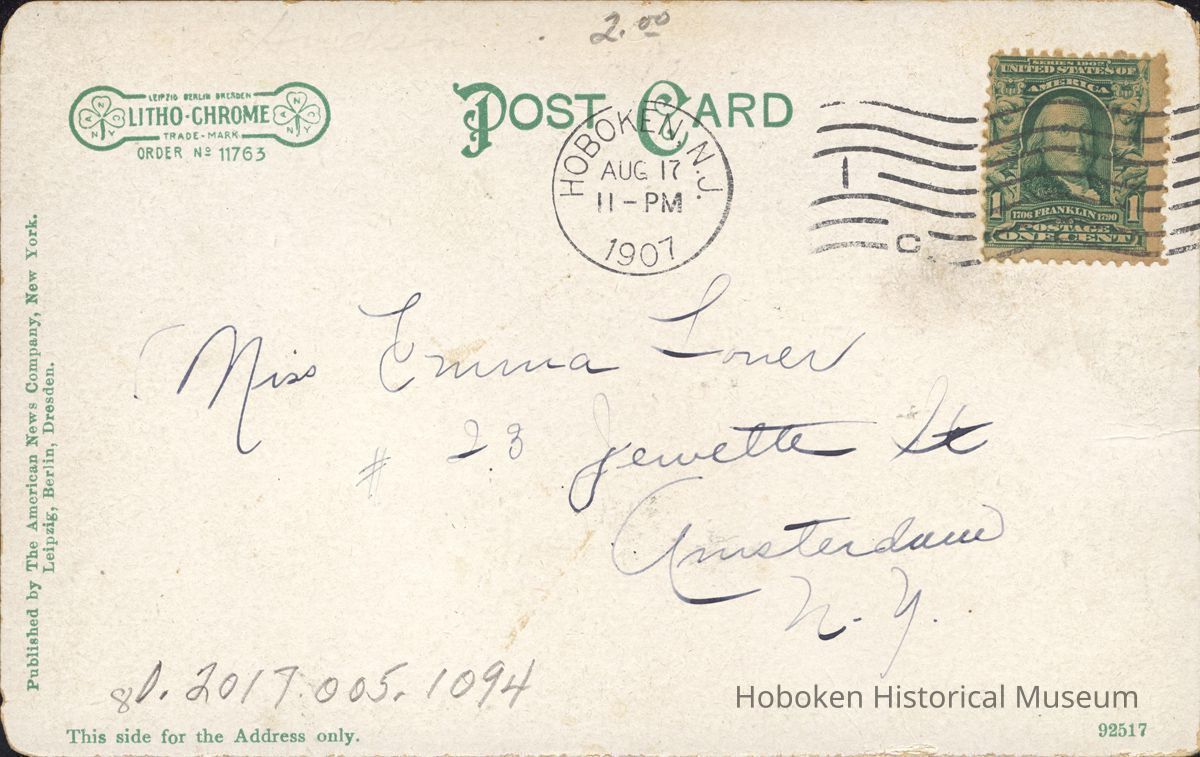 2.00
LEIPZIG BERLIN DRESDEN
LITHO-CHROME
TRADE-MARK
ORDER No 11763
POST CARD
HOBOKEN, N.J.
AUG 17
11-PM
1907
1
C
SERIES 1902
UNITED STATES OF
AMERICA
1706 FRANKLIN 1790
1 1
POSTAGE
ONE CENT
Published by The American News Company, New York.
Leipzig, Berlin, Dresden.
Miss Emma Loner
# 23 Jewette St
Amsterdam
N. Y.
2017.005.1094
Hoboken Historical Museum
This side for the Address only.
92517